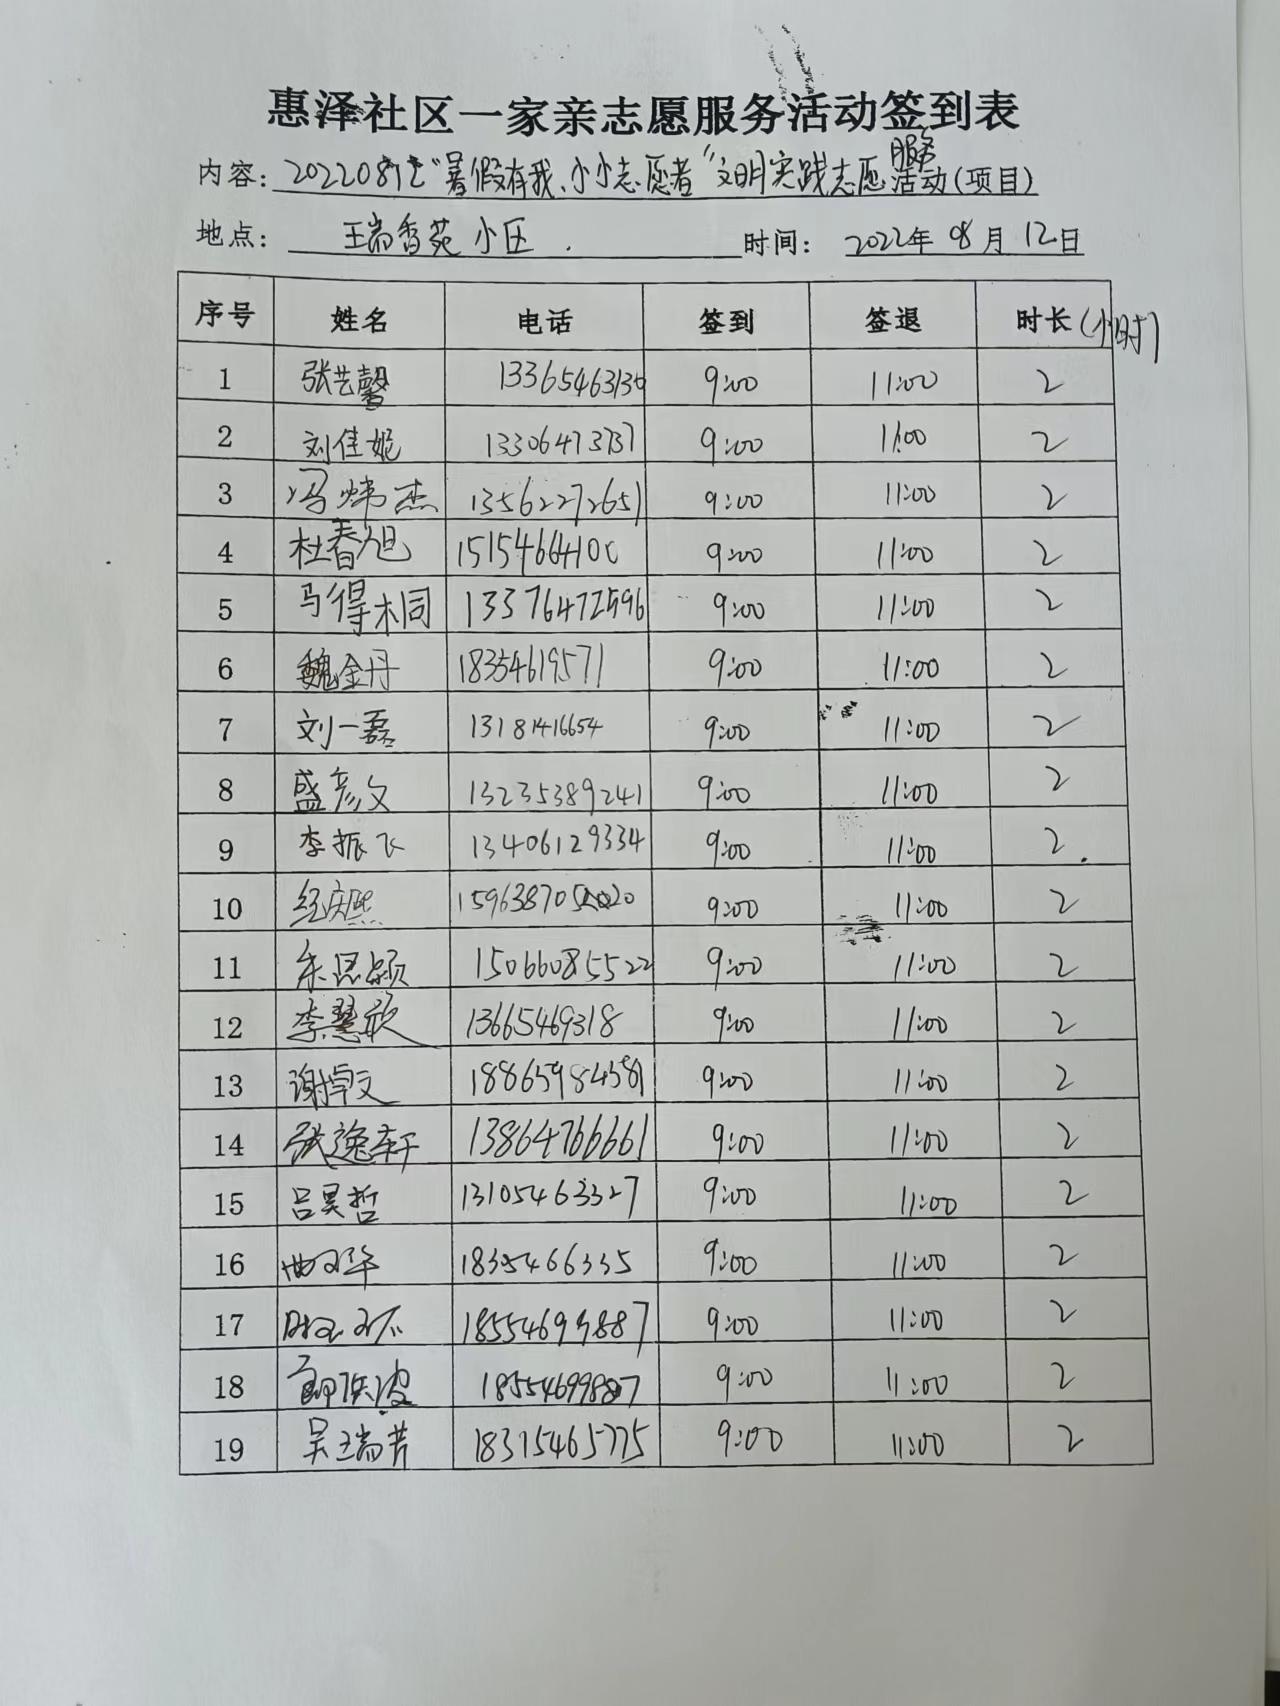 惠泽社区一家亲志愿服务活动签到表
内容: 20220812"暑假有我、小小志愿者"文明实践志愿服务活动(项目)
地点: 瑞香苑小区 时间: 2022年08月12日
序号 姓名 电话 签到 签退 时长(小时)
1 张艺馨 13365463130 9:00 11:00 2
2 刘佳妮 13306473737 9:00 11:00 2
3 冯炜杰 13562272651 9:00 11:00 2
4 杜春旭 15154664100 9:00 11:00 2
5 马得桐 13376472596 9:00 11:00 2
6 魏金丹 18354619571 9:00 11:00 2
7 刘一磊 13181416654 9:00 11:00 2
8 盛彦文 13235389241 9:00 11:00 2
9 李振飞 13406129334 9:00 11:00 2
10 9:00 11:00 2
11 朱思颖 15066085522 9:00 11:00 2
12 李慧欣 13665469318 9:00 11:00 2
13 18865984581 9:00 11:00 2
14 张逸轩 13864766661 9:00 11:00 2
15 吕昊哲 13105463327 9:00 11:00 2
16 1835466335 9:00 11:00 2
17 18554699887 9:00 11:00 2
18 18554699887 9:00 11:00 2
19 吴瑞芹 18315465775 9:00 11:00 2